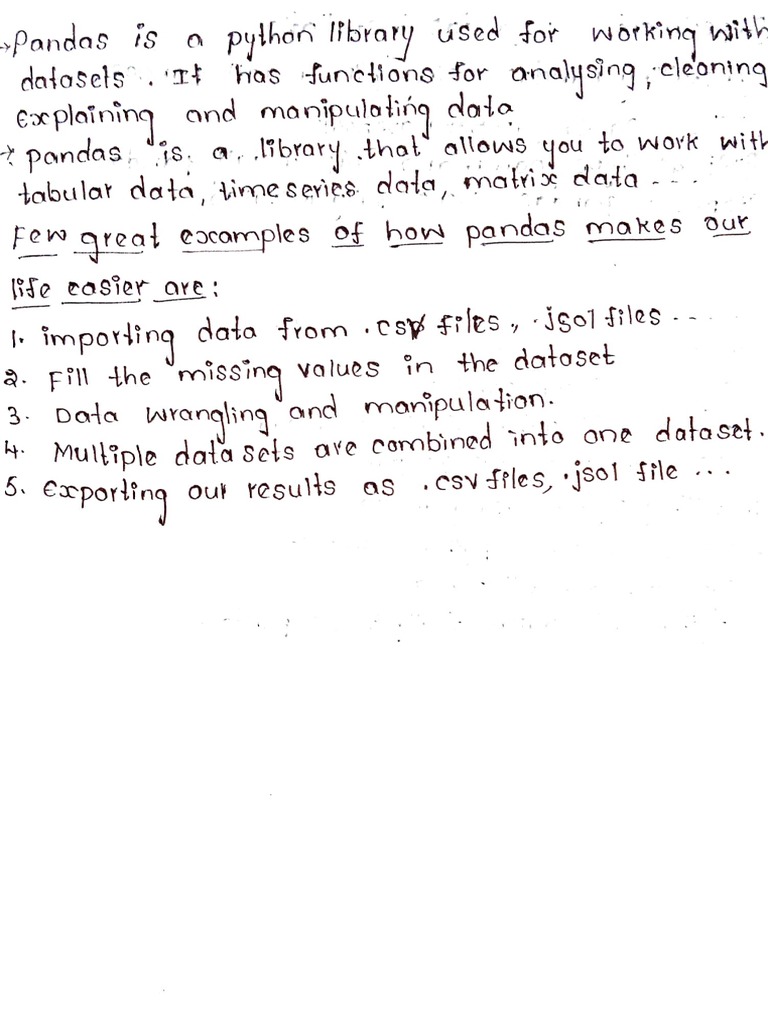 → Pandas is a python library used for working with
datasets. It has functions for analysing, cleaning
explaining and manipulating data
→ pandas is a library that allows you to work with
tabular data, time series data, matrix data ...
Few great examples of how pandas makes our
life easier are:
1. importing data from .csv files, .jsol files ...
2. Fill the missing values in the dataset
3. Data wrangling and manipulation.
4. Multiple datasets are combined into one dataset.
5. Exporting our results as .csv files, .jsol file ...